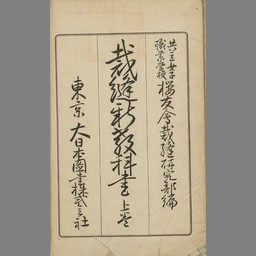 共立女子
職業学校
桜友会裁縫研究部編
裁縫新教科書 上巻
東京 大日本図書株式会社